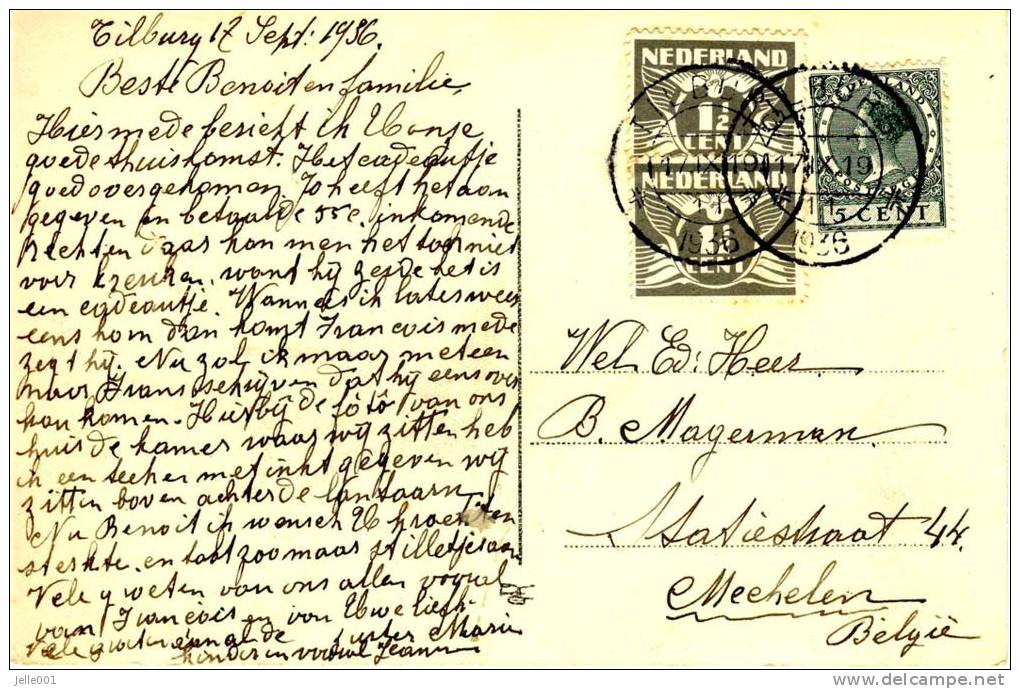 Tilburg 17 Sept: 1936.
Beste Benoit en familie,
Hiermede bericht ik U onze
goede thuiskomst. Het cadeautje
goed overgekomen. Jo heeft het aan
gegeven en betaalde 55c. inkomende
Rechten daar kon men het toch niet
voor , want hij zegde het is
een cadeautje. Wanneer ik later weer
eens kom dan komt Francois mede
zegt hij. Nu zal ik maar meteen
naar Frans schrijven dat hij eens over
kan komen. Hierbij de foto van ons
huis de kamer waar wij zitten heb
ik een met inkt gegeven wij
zitten boven achter de lantaarn
Nu Benoit ik wensch U
sterkte. en laat zoo maar stilletjes aan
Vele groeten van ons allen vooral
van Francois en van Uwe liefh.
zuster Marie
Vele groeten aan al de
kinderen vooral Jeanne
NEDERLAND
1½
CENT
NEDERLAND
1½
CENT
NEDERLAND
POSTZEGEL
5 CENT
TILBURG
17 IX 19
1936
TILBURG
17 IX 19
1936
Wel Ed: Heer
B. Magerman
Statiestraat 44.
Mechelen
België
jelle001
delcampe.net